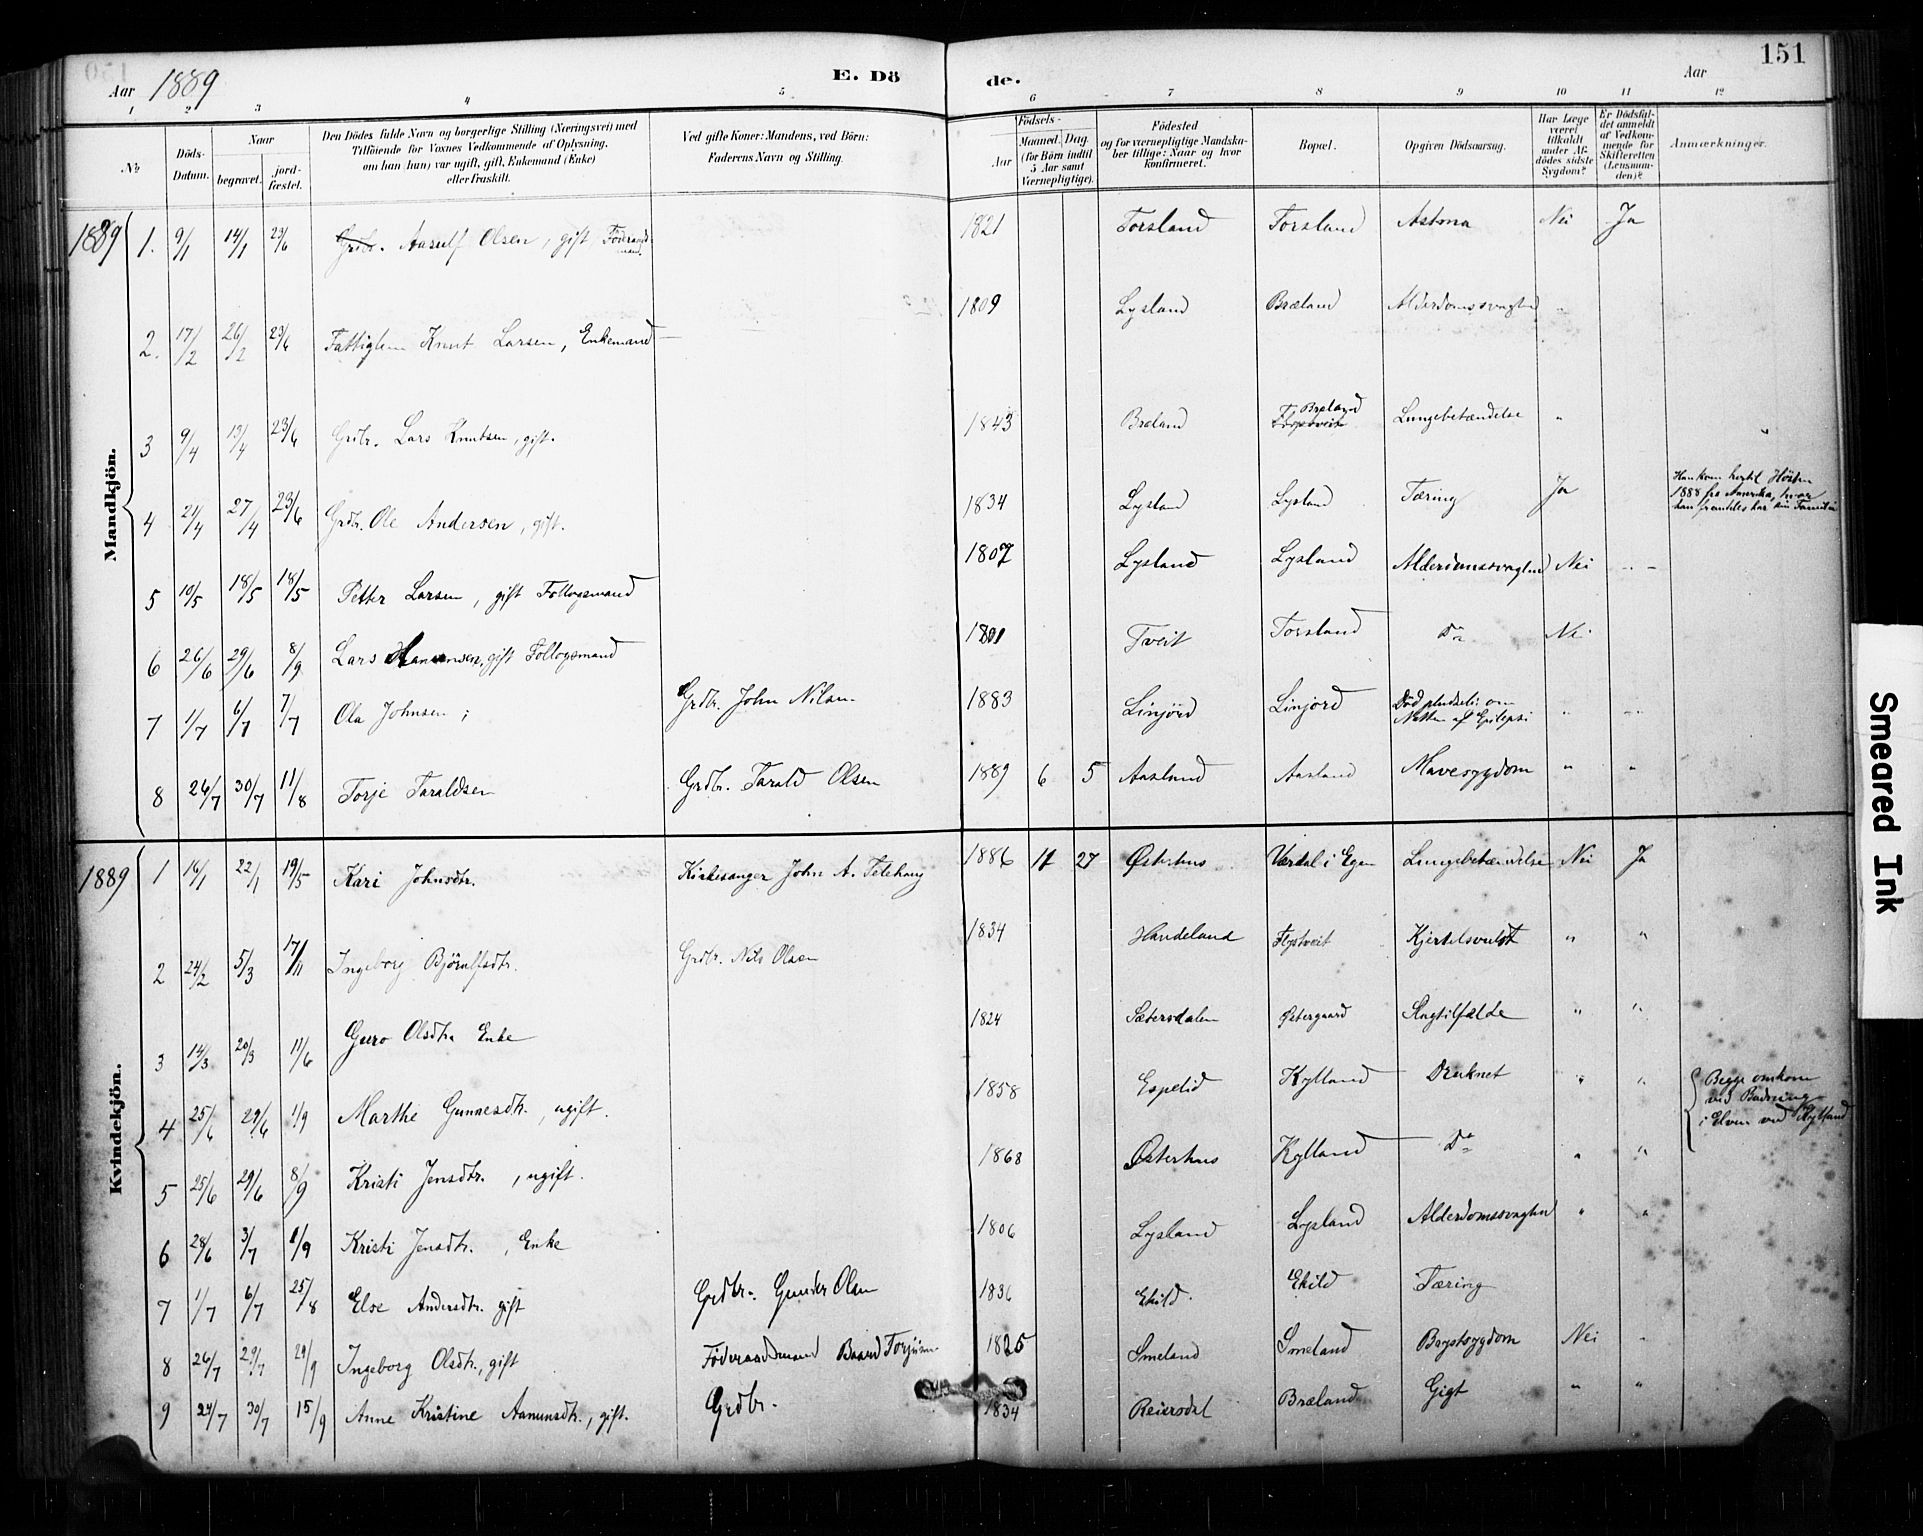 150
Aar 1889 E. Dö de. Aar 151
1 2 3 4 5 6 7 8 9 10 11 12
No
Döds-Datum.
Naar
begravet.
jord-fæstet.
Den Dödes fulde Navn og borgerlige Stilling (Næringsvei) med
Tilföiende for Voxnes Vedkommende af Oplysning,
om han (hun) var ugift, gift, Enkemand (Enke)
eller fraskilt.
Ved gifte Koner: Mandens, ved Börn:
Faderens Navn og Stilling.
Födsels-
Aar
Maaned. Dag.
(for Børn indtil
5 Aar samt
Værnepligtige).
Födested
og for værnepligtige Mandska-
ber tillige: Naar og hvor
konfirmeret.
Bopæl.
Opgiven Dödsaarsag.
Har Læge
været
tilkaldt
under Af-
dödes sidste
Sygdom?
Er Dödsfal-
det anmeldt
af Vedkom-
mende for
Skifteretten
(Lensman-
den)?
Anmærkninger.
Mandkjön.
1889 1. 9/1 14/1 23/6 Grdbr. Aasulf Olsen, gift, Föderaads-mand. 1821 Torsland Torsland Astma Nei Ja
2. 17/2 26/2 23/6 Fattiglem Knut Larsen, Enkemand — 1809 Lysland Bræland Alderdomssvaghed "
3 9/4 13/4 23/6 Grdbr. Lars Knutsen, gift. 1843 Bræland Flystveit Bræland Lungebetændelse " "
4 21/4 27/4 23/6 Grdbr. Ole Andersen, gift. 1834 Lysland Lysland Tæring Ja
Han kom hertil Hösten
1888 fra Amerika, hvor
han fremdeles har sin Familie
5 10/5 18/5 18/5 Petter Larsen, gift Follogsmand 1807 Lysland Lysland Alderdomssvaghed Nei - -
6 26/6 29/6 8/9 Lars Hansen, gift Follogsmand 1801 Tveit Torsland Do Nei
7 1/7 6/7 7/7 Ola Johnsen; Grdbr. John Nilsen 1883 Linjord Linjord Död pludseli om
Natten af Epilepsi " "
8 26/7 30/7 11/8 Torje Taraldsen Grdbr. Tarald Olsen 1889 6 5 Aasland Aasland Mavesygdom " "
Kvindekjön.
1889 1 16/1 22/1 19/5 Kari Johnsdtr. Kirkesanger John A. Felehaug 1886 11 27 Østerhus Værdal i Egen Lungebetændelse Nei Ja
2 24/2 5/3 17/11 Ingeborg Björulfsdtr. Grdbr. Nils Olsen 1834 Handeland Flystveit Kjertelsvulst " "
3 14/3 20/3 11/6 Guro Olsdtr. Enke 1824 Sætersdalen Østergaard Slagtilfælde " "
4 25/6 29/6 1/9 Marthe Gunnesdtr., ugift. 1858 Espelid Kylland Druknet " "
Begge omkom
ved Badning
i Elven ved Kylland
5 25/6 29/6 8/9 Kristi Jensdtr., ugift. 1868 Østerhus Kylland Do " "
6 28/6 3/7 1/9 Kristi Jensdtr., Enke 1806 Lysland Lysland Alderdomssvaghed " "
7 1/7 6/7 25/8 Else Andersdtr. gift Grdbr. Gunder Olsen 1836 Ekild. Ekild Tæring
8 26/7 29/7 29/9 Ingeborg Olsdtr., gift Föderaadsmand Baard Torjüsen 1825 Smeland Smeland Brystsygdom Nei "
9 24/7 30/7 15/9 Anne Kristine Aamunsdtr., gift. Grdbr. 1834 Reiersdal Bræland Gigt " "
Smeared Ink